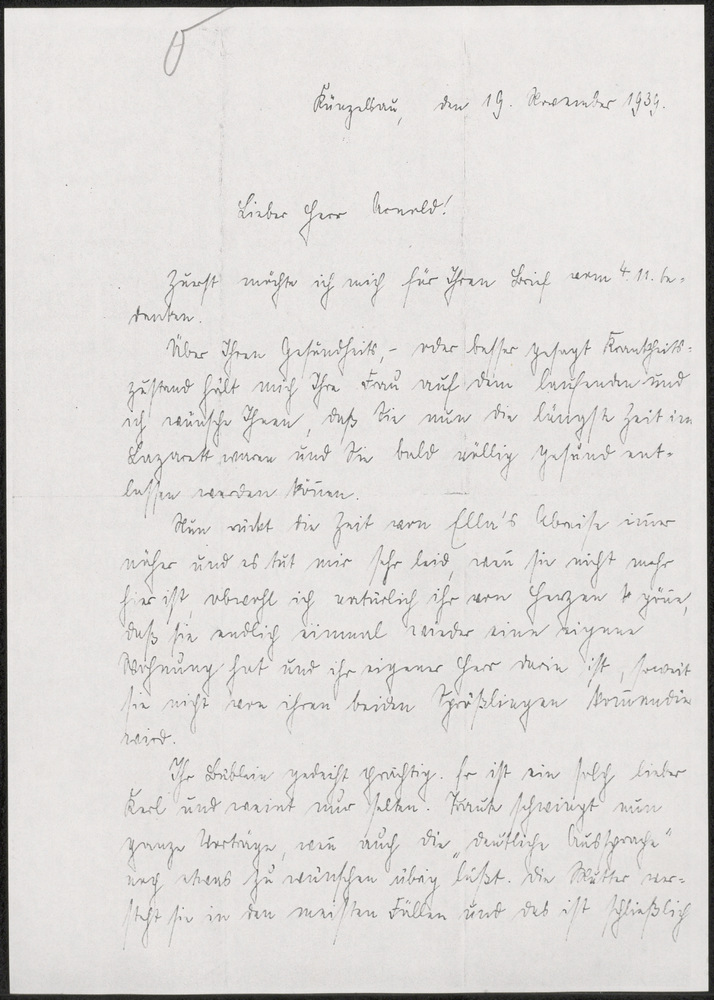 Künzelsau, den 19. November 1939.
Lieber Herr Arnold!
Zuerst möchte ich mich für Ihren Brief vom 4.11. be-
danken.
Über Ihren Gesundheits,- oder besser gesagt Krankheits-
zustand hält mich Ihre Frau auf dem laufenden und
ich wünsche Ihnen, daß Sie nun die längste Zeit im
Lazarett waren und Sie bald völlig gesund ent-
lassen werden können.
Nun rückt die Zeit von Ella's Abreise immer
näher und es tut mir sehr leid, wenn sie nicht mehr
hier ist, obwohl ich natürlich ihr von Herzen gönne,
daß sie endlich einmal wieder eine eigene
Wohnung hat und ihr eigener Herr darin ist, soweit
sie nicht von ihren beiden Sprößlingen
wird.
Ihr Büblein gedeiht prächtig. Er ist ein solch lieber
Kerl und weint nur selten. Traute schwingt nun
ganze Vorträge, wenn auch die „deutliche Aussprache"
noch etwas zu wünschen übrig läßt. Die Mutter ver-
steht sie in den meisten Fällen und das ist schließlich